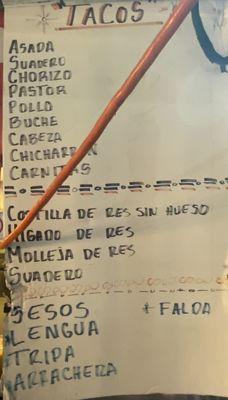 "TACOS"
ASADA
SUADERO
CHORIZO
PASTOR
POLLO
BUCHE
CABEZA
CHICHARRON
CARNITAS
COSTILLA DE RES SIN HUESO
HIGADO DE RES
MOLLEJA DE RES
SUADERO
SESOS + FALDA
LENGUA
TRIPA
ARRACHERA